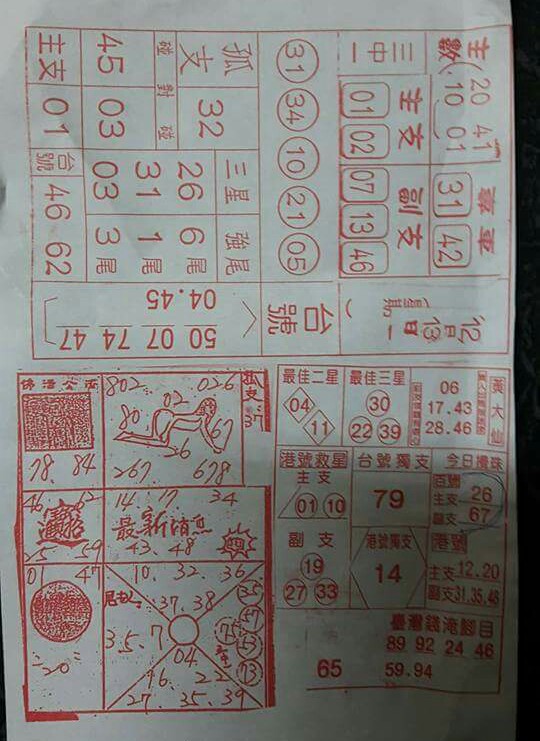 主數 20 41
10 01
專車
31 42
三中一
主支 01 02
副支 07 13 46
31 34 10 21 05
孤支
32
碰對碰
45
03
主支
01
三星 強尾
26 6尾
31 1尾
03 3尾
台號
46 62
12月13日
星期一
台號
04.45
50 07 74 47
佛港公佈
802 026
02
80
67
36
267 678
孤支
78. 84
46 62
14 17 34
招財進寶
最新消息
25 59
43. 48
01 47
10. 32. 36
37. 38
3.5.7
04
16. 22
27. 35. 39
"20"
最佳二星
04
11
最佳三星
30
22 39
黃大仙
06
17.43
28.46
港號救星
主支
01 10
副支
19
27 33
台號獨支
79
港號獨支
14
今日攪珠
百號
主支 26
副支 67
港號
主支 12.20
副支 31.35.48
臺灣錢淹腳目
89 92 24 46
65 59.94